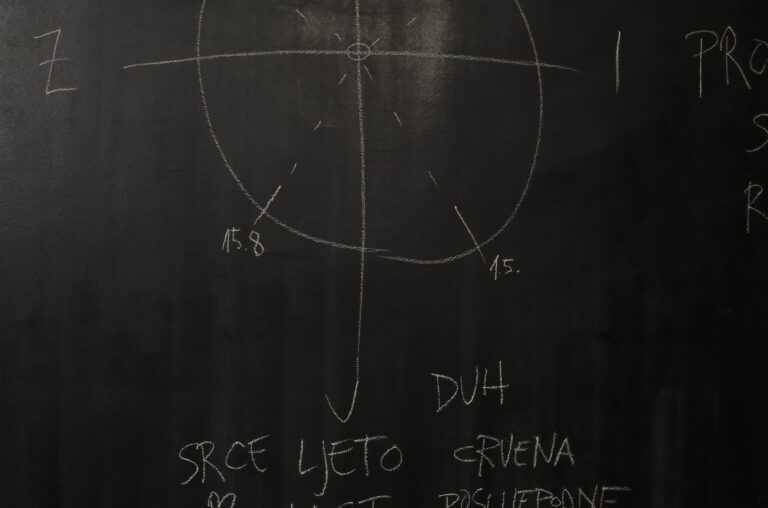 Z I PRO
S
R
15.8.
15.
DUH
SRCE LJETO CRVENA
POSLIJEPODNE